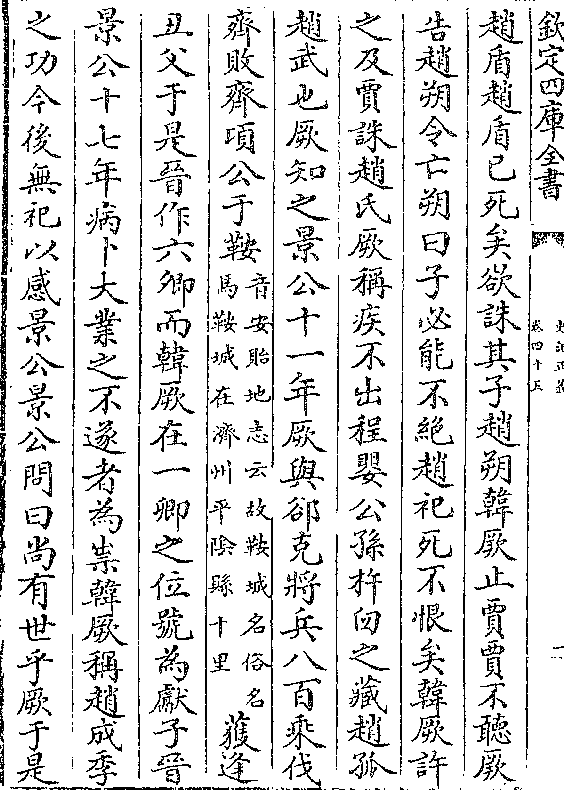 欽定四庫全書
史記正義
卷四十五
二
趙盾趙盾已死矣欲誅其子趙朔韓厥止賈賈不聽厥
告趙朔令亡朔曰子必能不絕趙祀死不恨矣韓厥許
之及賈誅趙氏厥稱疾不出程嬰公孫杵臼之藏趙孤
趙武也厥知之景公十一年厥與郤克將兵八百乘伐
齊敗齊頃公于鞍音安貽地志云故鞍城名俗名馬鞍城在濟州平陰縣十里獲逢
丑父于是晉作六卿而韓厥在一卿之位號為獻子晉
景公十七年病卜大業之不遂者為祟韓厥稱趙成季
之功今後無祀以感景公景公問曰尚有世乎厥于是